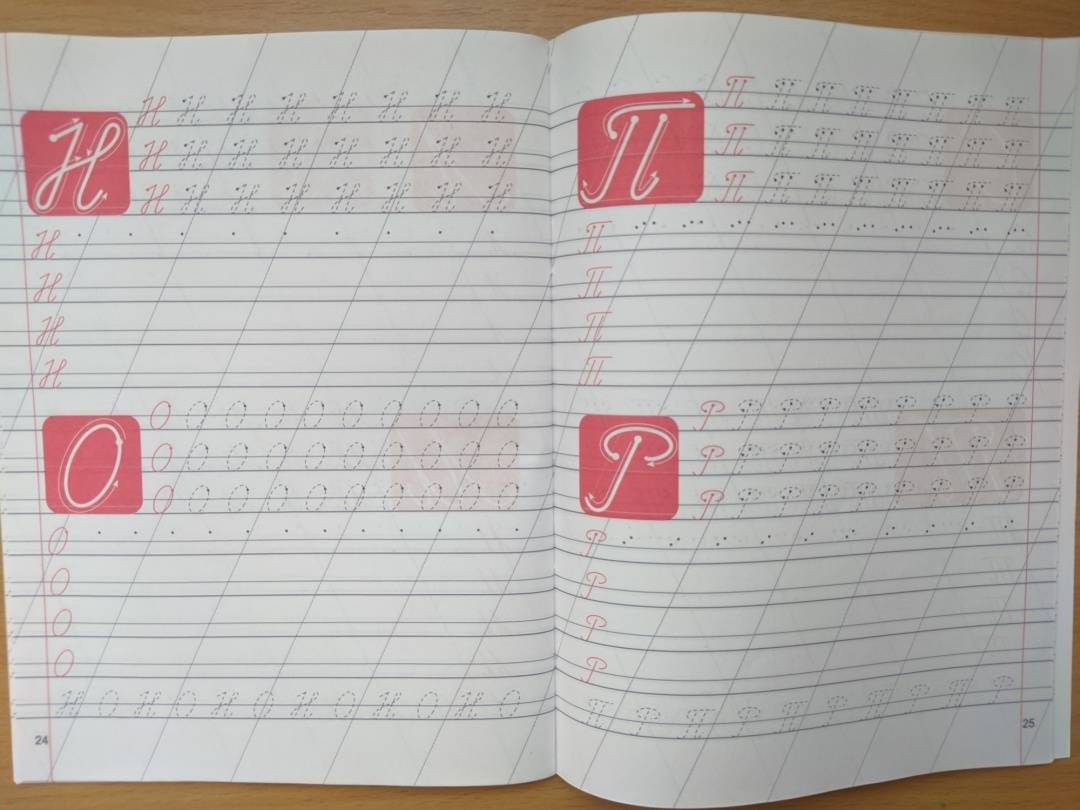 Н
Н Н Н Н Н Н Н Н
Н Н Н Н Н Н Н Н
Н Н Н Н Н Н Н Н
Н
Н
Н
Н
О
О О О О О О О О О О
О О О О О О О О О О
О О О О О О О О О О
О
О
О
О
Н О Н О Н О Н О Н О Н О
24
П
П П П П П П П П
П П П П П П П П
П П П П П П П П
П
П
П
П
Р
Р Р Р Р Р Р Р Р Р
Р Р Р Р Р Р Р Р Р
Р Р Р Р Р Р Р Р Р
Р
Р
Р
Р
П Р П Р П Р П Р П Р
25